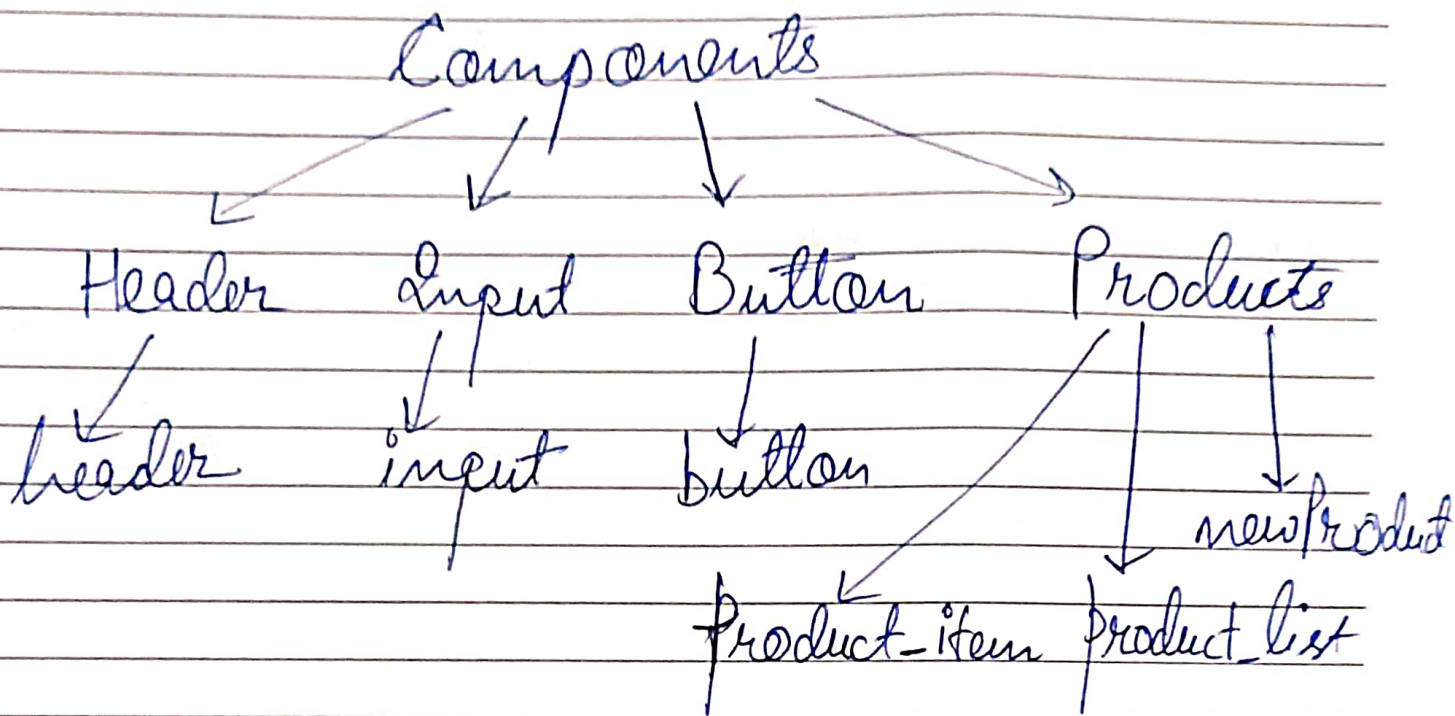 Components
Header Input Button Products
header input button
newProduct
product-item product_list